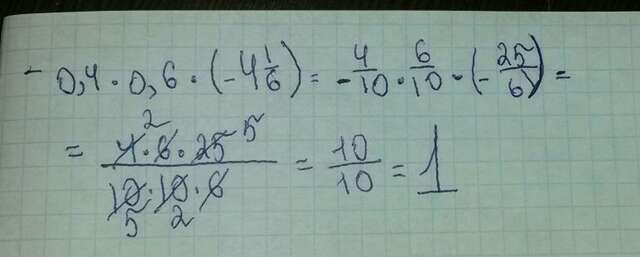 - 0,4 · 0,6 · (-4 1/6) = - 4/10 · 6/10 · (- 25/6) =
= 4 2 · 6 · 25 5 / 10 5 · 10 2 · 6 = 10/10 = 1